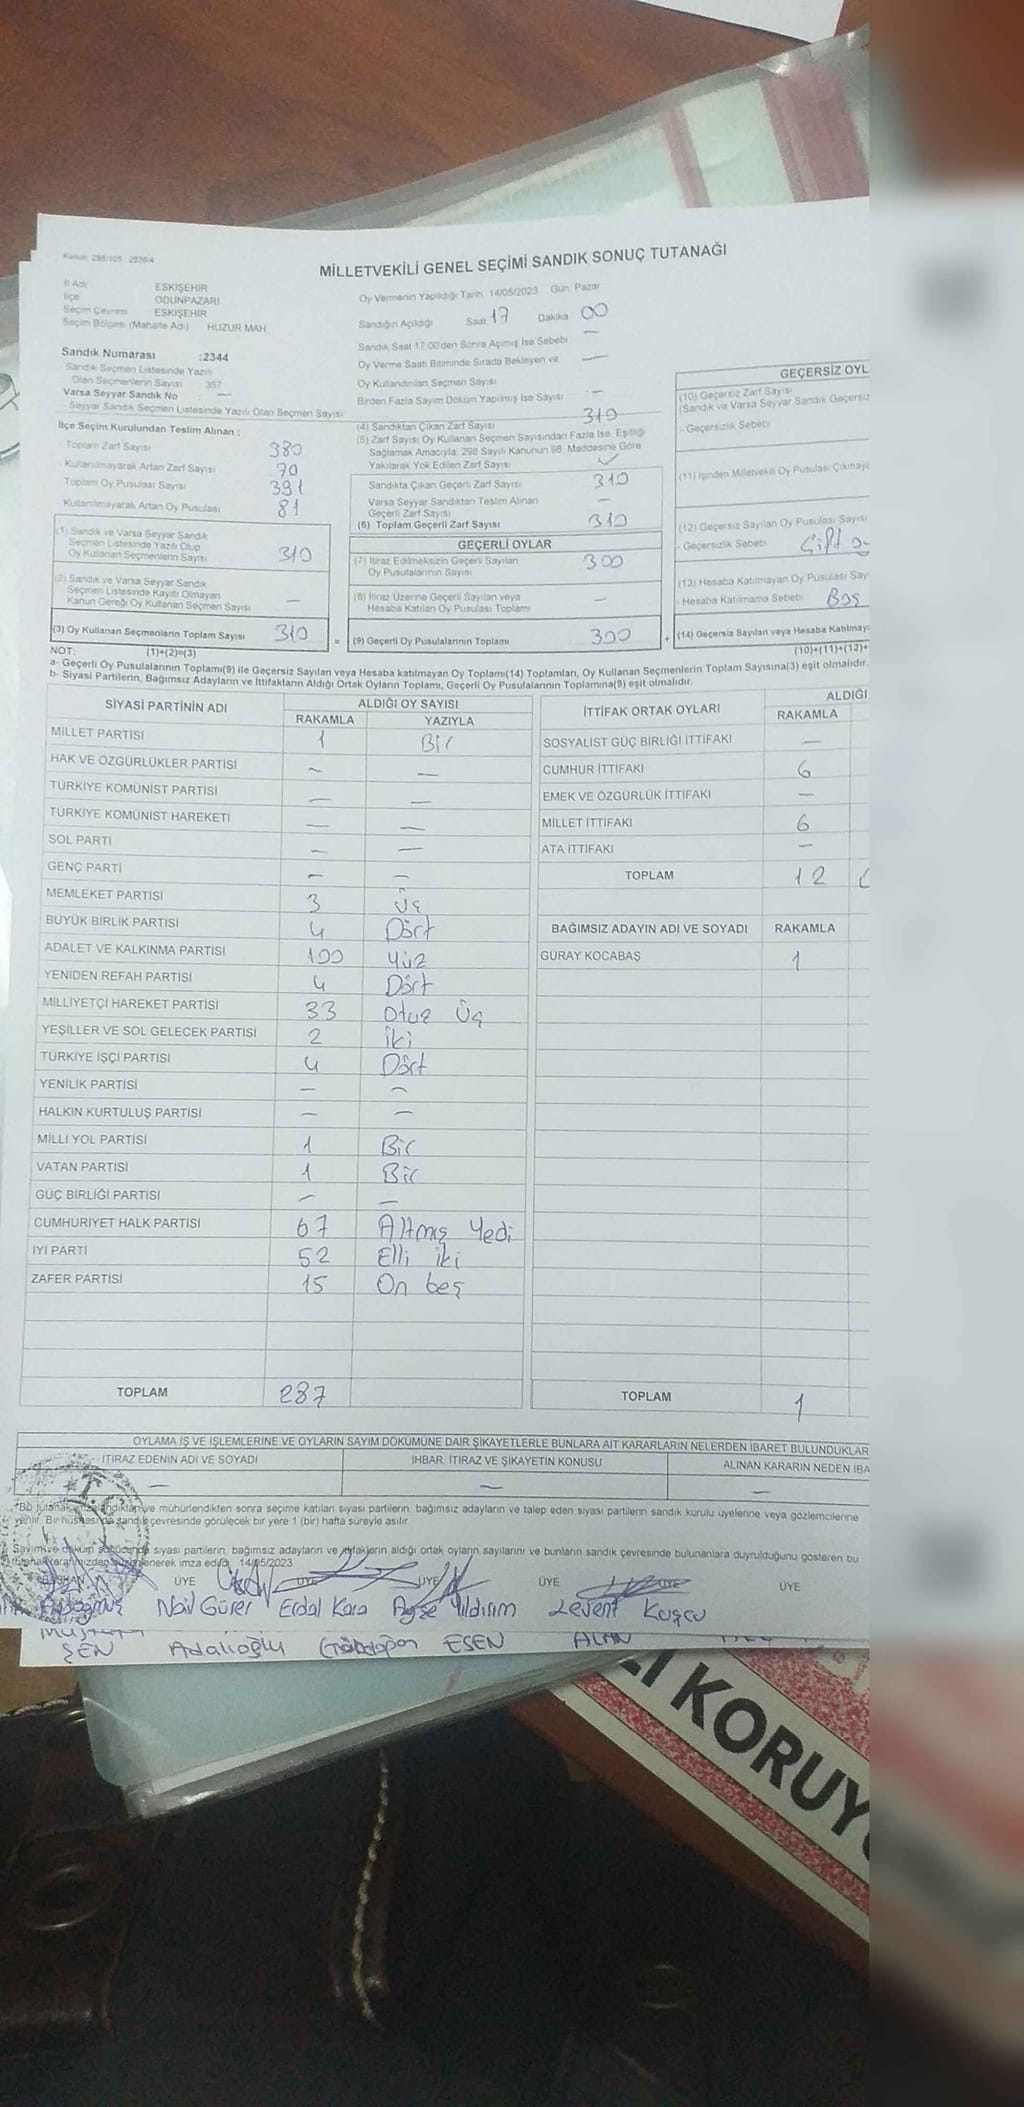 Kanun: 298/105 - 2839/4
MİLLETVEKİLİ GENEL SEÇİMİ SANDIK SONUÇ TUTANAĞI
İl Adı ESKİŞEHİR
İlçe ODUNPAZARI
Seçim Çevresi ESKİŞEHİR
Seçim Bölgesi (Mahalle Adı) HUZUR MAH.
Oy Vermenin Yapıldığı Tarih: 14/05/2023 Gün: Pazar
Sandığın Açıldığı Saat: 17 Dakika: 00
Sandık Saat 17:00'den Sonra Açılmış İse Sebebi —
Oy Verme Saati Bitiminde Sırada Bekleyen ve —
Oy Kullandırılan Seçmen Sayısı
Birden Fazla Sayım Döküm Yapılmış İse Sayısı —
Sandık Numarası :2344
- Sandık Seçmen Listesinde Yazılı
Olan Seçmenlerin Sayısı 357
Varsa Seyyar Sandık No : —
- Seyyar Sandık Seçmen Listesinde Yazılı Olan Seçmen Sayısı
İlçe Seçim Kurulundan Teslim Alınan ;
- Toplam Zarf Sayısı 380
- Kullanılmayarak Artan Zarf Sayısı 70
- Toplam Oy Pusulası Sayısı 391
- Kullanılmayarak Artan Oy Pusulası 81
(1) Sandık ve Varsa Seyyar Sandık
Seçmen Listesinde Yazılı Olup
Oy Kullanan Seçmenlerin Sayısı 310
(2) Sandık ve Varsa Seyyar Sandık
Seçmen Listesinde Kayıtlı Olmayan
Kanun Gereği Oy Kullanan Seçmen Sayısı —
(3) Oy Kullanan Seçmenlerin Toplam Sayısı 310
(1)+(2)=(3)
(4) Sandıktan Çıkan Zarf Sayısı 310
(5) Zarf Sayısı Oy Kullanan Seçmen Sayısından Fazla İse, Eşitliği
Sağlamak Amacıyla; 298 Sayılı Kanunun 98. Maddesine Göre
Yakılarak Yok Edilen Zarf Sayısı
Sandıkta Çıkan Geçerli Zarf Sayısı 310
Varsa Seyyar Sandıktan Teslim Alınan
Geçerli Zarf Sayısı —
(6) Toplam Geçerli Zarf Sayısı 310
GEÇERLİ OYLAR
(7) İtiraz Edilmeksizin Geçerli Sayılan
Oy Pusulalarının Sayısı 300
(8) İtiraz Üzerine Geçerli Sayılan veya
Hesaba Katılan Oy Pusulası Toplamı —
= (9) Geçerli Oy Pusulalarının Toplamı 300 +
GEÇERSİZ OYL
(10) Geçersiz Zarf Sayısı
(Sandık ve Varsa Seyyar Sandık Geçersiz
- Geçersizlik Sebebi
(11) İçinden Milletvekili Oy Pusulası Çıkmaya
(12) Geçersiz Sayılan Oy Pusulası Sayısı
- Geçersizlik Sebebi Çift
(13) Hesaba Katılmayan Oy Pusulası Say
- Hesaba Katılmama Sebebi Boş
(14) Geçersiz Sayılan veya Hesaba Katılmay
(10)+(11)+(12)+
NOT:
a- Geçerli Oy Pusulalarının Toplamı(9) ile Geçersiz Sayılan veya Hesaba katılmayan Oy Toplamı(14) Toplamları, Oy Kullanan Seçmenlerin Toplam Sayısına(3) eşit olmalıdır.
b- Siyasi Partilerin, Bağımsız Adayların ve İttifakların Aldığı Ortak Oyların Toplamı, Geçerli Oy Pusulalarının Toplamına(9) eşit olmalıdır.
SİYASİ PARTİNİN ADI ALDIĞI OY SAYISI
RAKAMLA YAZIYLA
MİLLET PARTİSİ 1 Bir
HAK VE ÖZGÜRLÜKLER PARTİSİ — —
TÜRKİYE KOMÜNİST PARTİSİ — —
TÜRKİYE KOMÜNİST HAREKETİ — —
SOL PARTİ — —
GENÇ PARTİ — —
MEMLEKET PARTİSİ 3 Üç
BÜYÜK BİRLİK PARTİSİ 4 Dört
ADALET VE KALKINMA PARTİSİ 100 Yüz
YENİDEN REFAH PARTİSİ 4 Dört
MİLLİYETÇİ HAREKET PARTİSİ 33 Otuz Üç
YEŞİLLER VE SOL GELECEK PARTİSİ 2 İki
TÜRKİYE İŞÇİ PARTİSİ 4 Dört
YENİLİK PARTİSİ — —
HALKIN KURTULUŞ PARTİSİ — —
MİLLİ YOL PARTİSİ 1 Bir
VATAN PARTİSİ 1 Bir
GÜÇ BİRLİĞİ PARTİSİ — —
CUMHURİYET HALK PARTİSİ 67 Altmış Yedi
İYİ PARTİ 52 Elli iki
ZAFER PARTİSİ 15 On beş
TOPLAM 287
İTTİFAK ORTAK OYLARI ALDIĞI
RAKAMLA
SOSYALİST GÜÇ BİRLİĞİ İTTİFAKI —
CUMHUR İTTİFAKI 6
EMEK VE ÖZGÜRLÜK İTTİFAKI —
MİLLET İTTİFAKI 6
ATA İTTİFAKI —
TOPLAM 12
BAĞIMSIZ ADAYIN ADI VE SOYADI RAKAMLA
GÜRAY KOCABAŞ 1
TOPLAM 1
OYLAMA İŞ VE İŞLEMLERİNE VE OYLARIN SAYIM DÖKÜMÜNE DAİR ŞİKAYETLERLE BUNLARA AİT KARARLARIN NELERDEN İBARET BULUNDUKLAR
İTİRAZ EDENİN ADI VE SOYADI İHBAR, İTİRAZ VE ŞİKAYETİN KONUSU ALINAN KARARIN NEDEN İBA
— — —
T.C.
ve mühürlendikten sonra seçime katılan siyasi partilerin, bağımsız adayların ve talep eden siyasi partilerin sandık kurulu üyelerine veya gözlemcilerine
verilir. Bir sandık çevresinde görülecek bir yere 1 (bir) hafta süreyle asılır.
siyasi partilerin, bağımsız adayların ve ittifakların aldığı ortak oyların sayılarını ve bunların sandık çevresinde bulunanlara duyurulduğunu gösteren bu
imza edildi. 14/05/2023
BAŞKAN ÜYE ÜYE ÜYE ÜYE ÜYE ÜYE
Nail Gürer Erdal Kara Ayşe Yıldırım Levent Kuşcu
ŞEN Adalıoğlu ESEN ALAN
KORUY